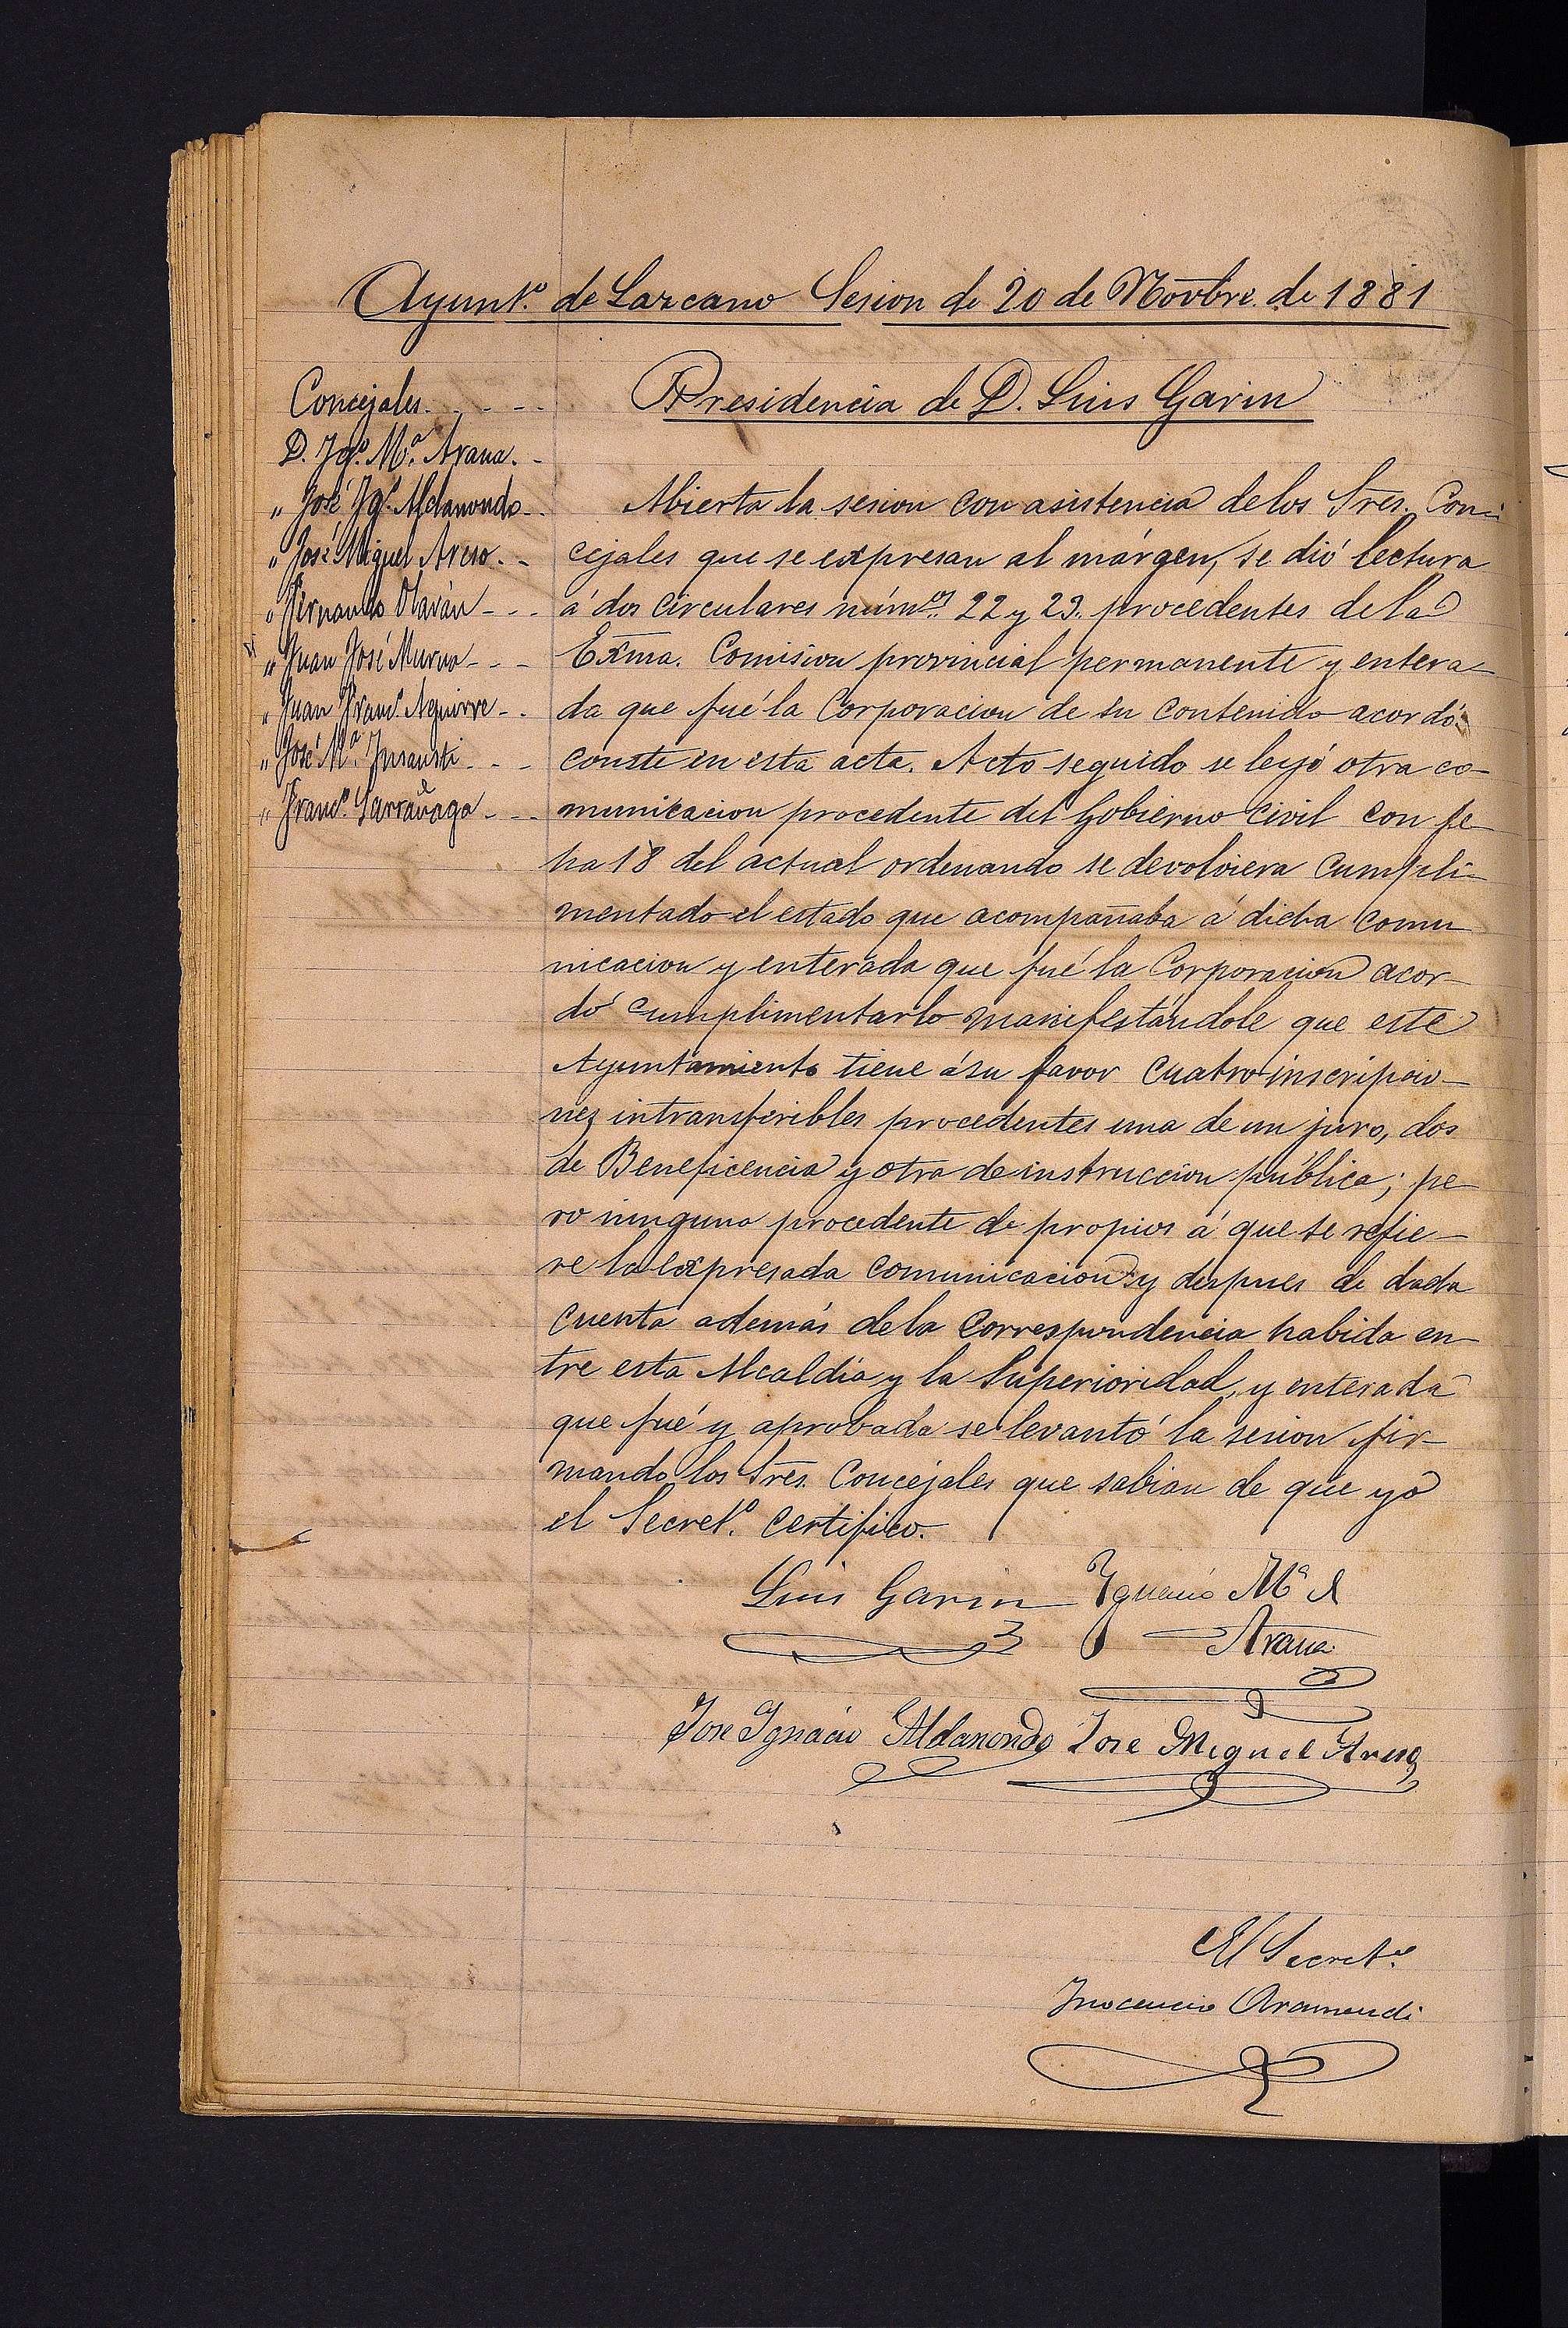 Ayunt.º de Lazcano Sesion de 20 de Novbre. de 1881
Presidencia de D. Luis Garin
Concejales. - - -
D. Ygº. Mª. Arana. -
" José Ygº. Aldanondo - -
" José Miguel Areso. - -
" Fernando Olaván - - -
" Juan José Murua - - -
" Juan Francº. Aguirre - -
" José Mª. Insausti - - -
" Francº. Larrañaga - - -
Abierta la sesion con asistencia de los Sres. Con-
cejales que se expresan al márgen, se dió lectura
á dos circulares númos. 22 y 23. procedentes de la
Exma. Comision provincial permanente y entera-
da que fué la Corporacion de su contenido acordó
conste en esta acta. Acto seguido se leyó otra co-
municacion procedente del Gobierno Civil con fe-
ha 18 del actual ordenando se devolviera cumpli-
mentado el estado que acompañaba á dicha comu
nicacion y enterada que fué la Corporacion acor-
dó cumplimentarlo manifestándole que este
Ayuntamiento tiene á su favor cuatro inscripcio-
nes intransferibles procedentes una de un juro, dos
de Beneficencia y otra de instruccion pública; pe-
ro ninguna procedente de propios á que se refie-
re la expresada comunicacion y despues de dada
cuenta además de la correspondencia habida en-
tre esta Alcaldia y la Superioridad, y enterada
que fué y aprobada se levantó la sesion fir-
mando los Sres. Concejales que sabian de que yo
el Secretº. certifico.
Luis Garin Ygnacio Mª d
Arana
Jose Ygnacio Aldanondo Jose Miguel Areso
El Secretº.
Inocencio Aramendi